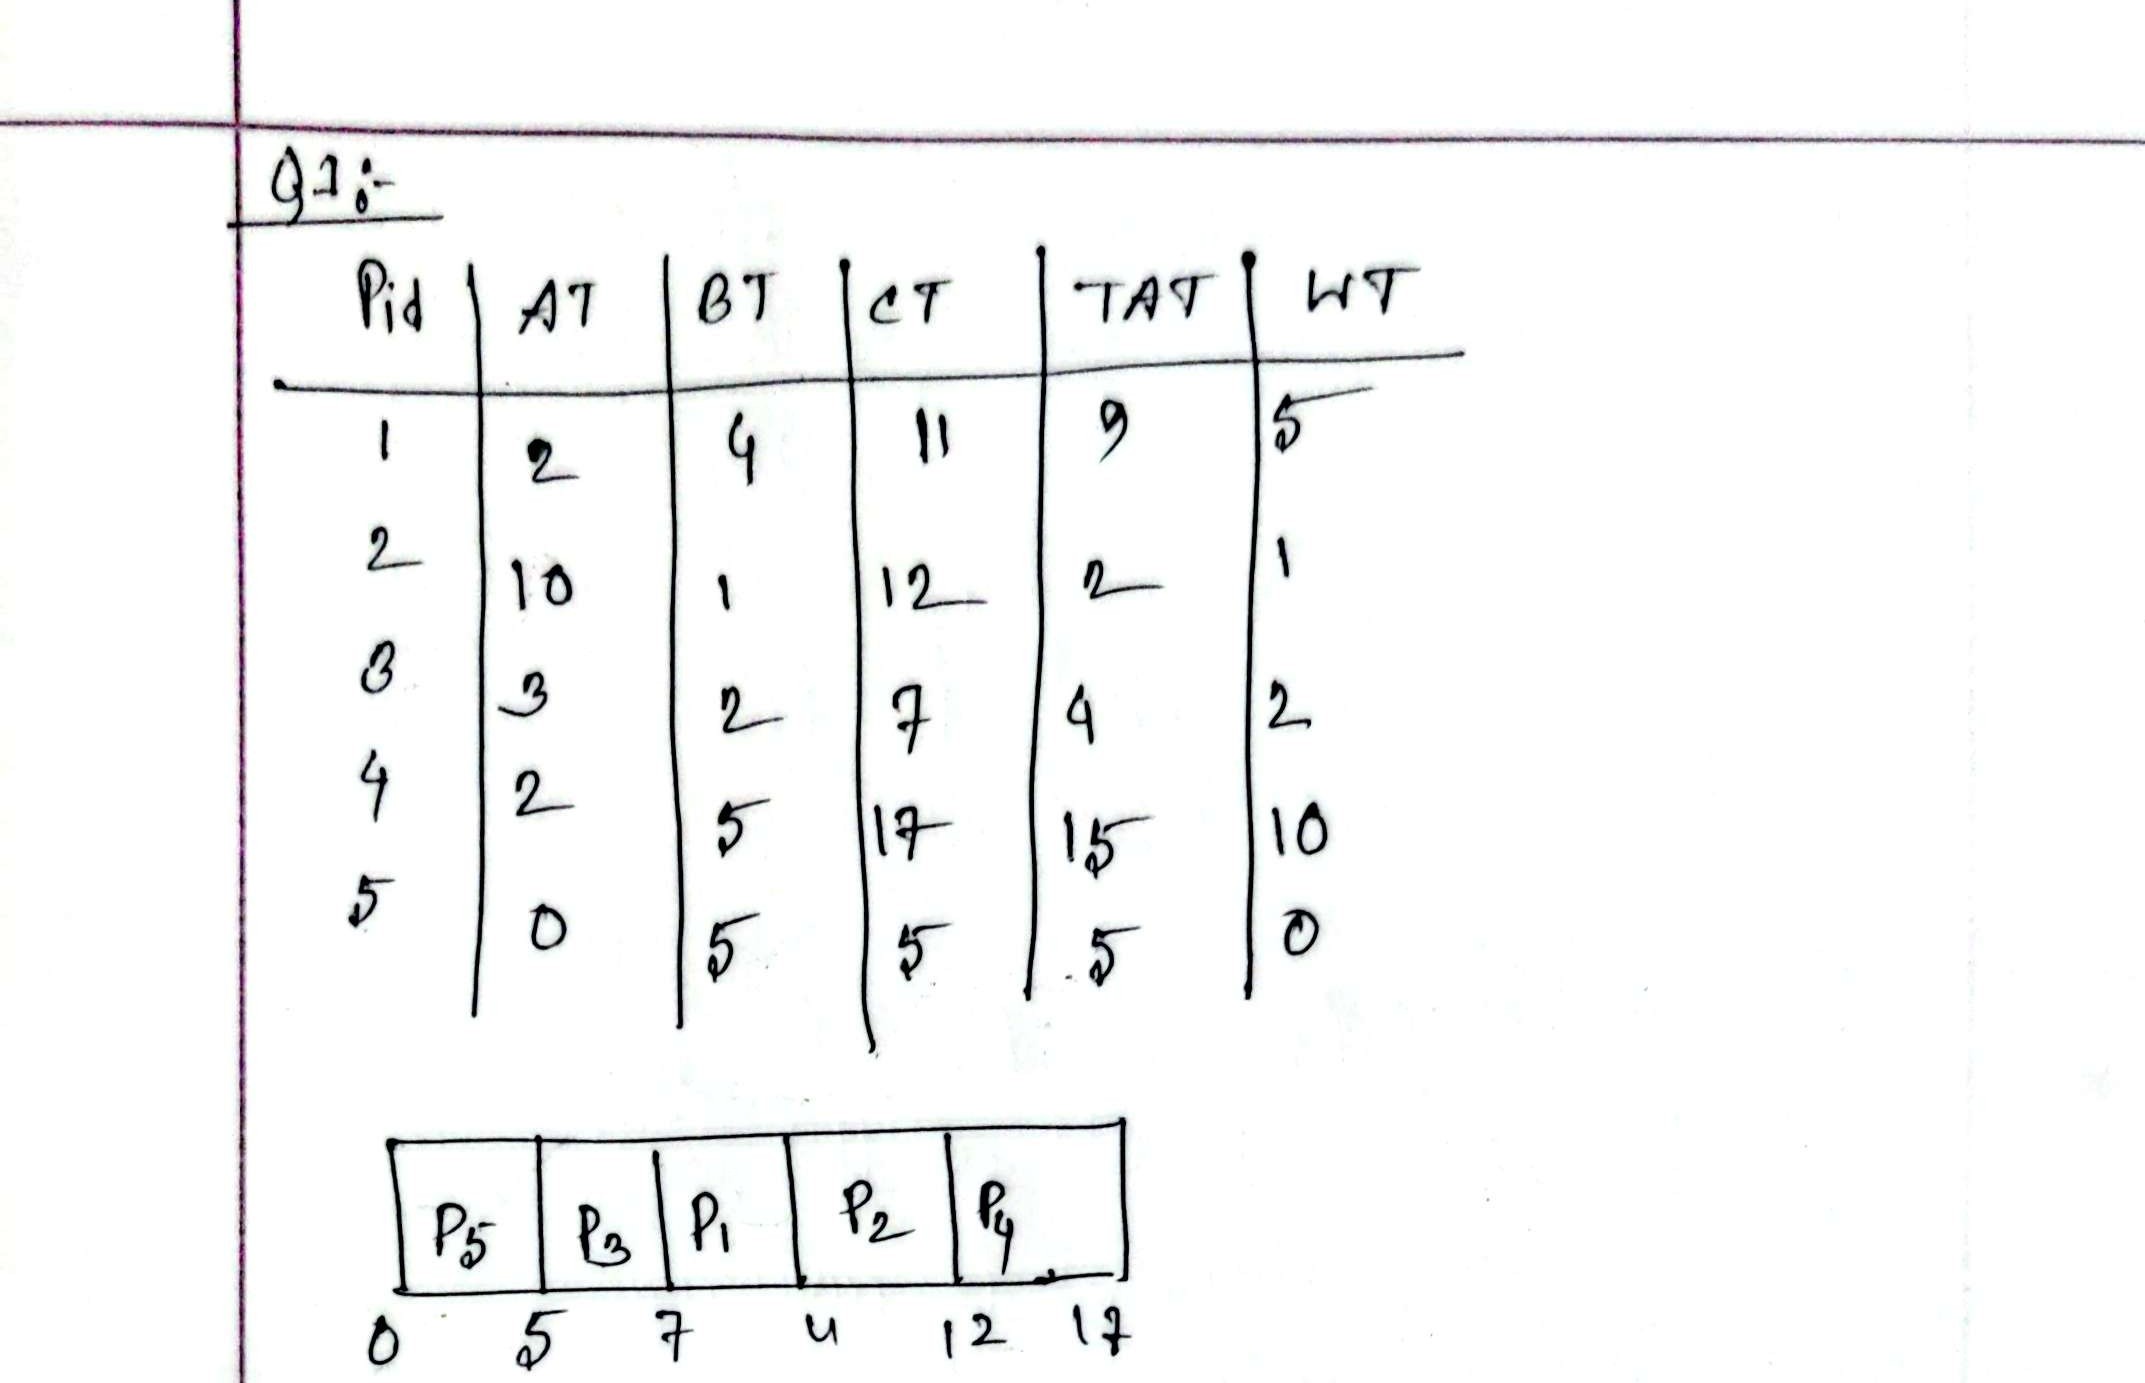 Q1:-
Pid AT BT CT TAT WT
1 2 4 11 9 5
2 10 1 12 2 1
3 3 2 7 4 2
4 2 5 17 15 10
5 0 5 5 5 0
P5 P3 P1 P2 P4
0 5 7 11 12 17